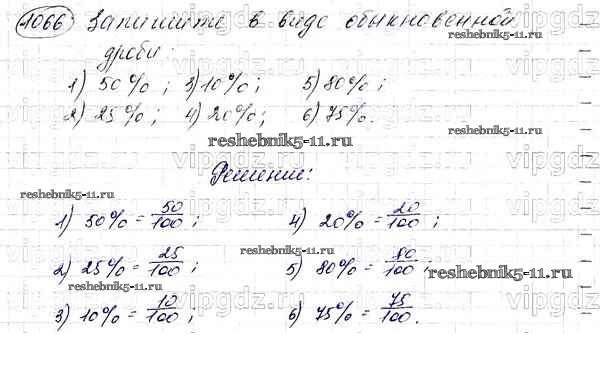 1066 Запишите в виде обыкновенной
дроби:
1) 50%; 3) 10%; 5) 80%;
2) 25%; 4) 20%; 6) 75%.
reshebnik5-11.ru
reshebnik5-11.ru
vipgdz.ru vipgdz.ru vipgdz.ru
Решение:
reshebnik5-11.ru
1) 50% = 50/100; 4) 20% = 20/100;
reshebnik5-11.ru
2) 25% = 25/100; 5) 80% = 80/100;
reshebnik5-11.ru
reshebnik5-11.ru
vipgdz.ru vipgdz.ru vipgdz.ru
3) 10% = 10/100; 6) 75% = 75/100.